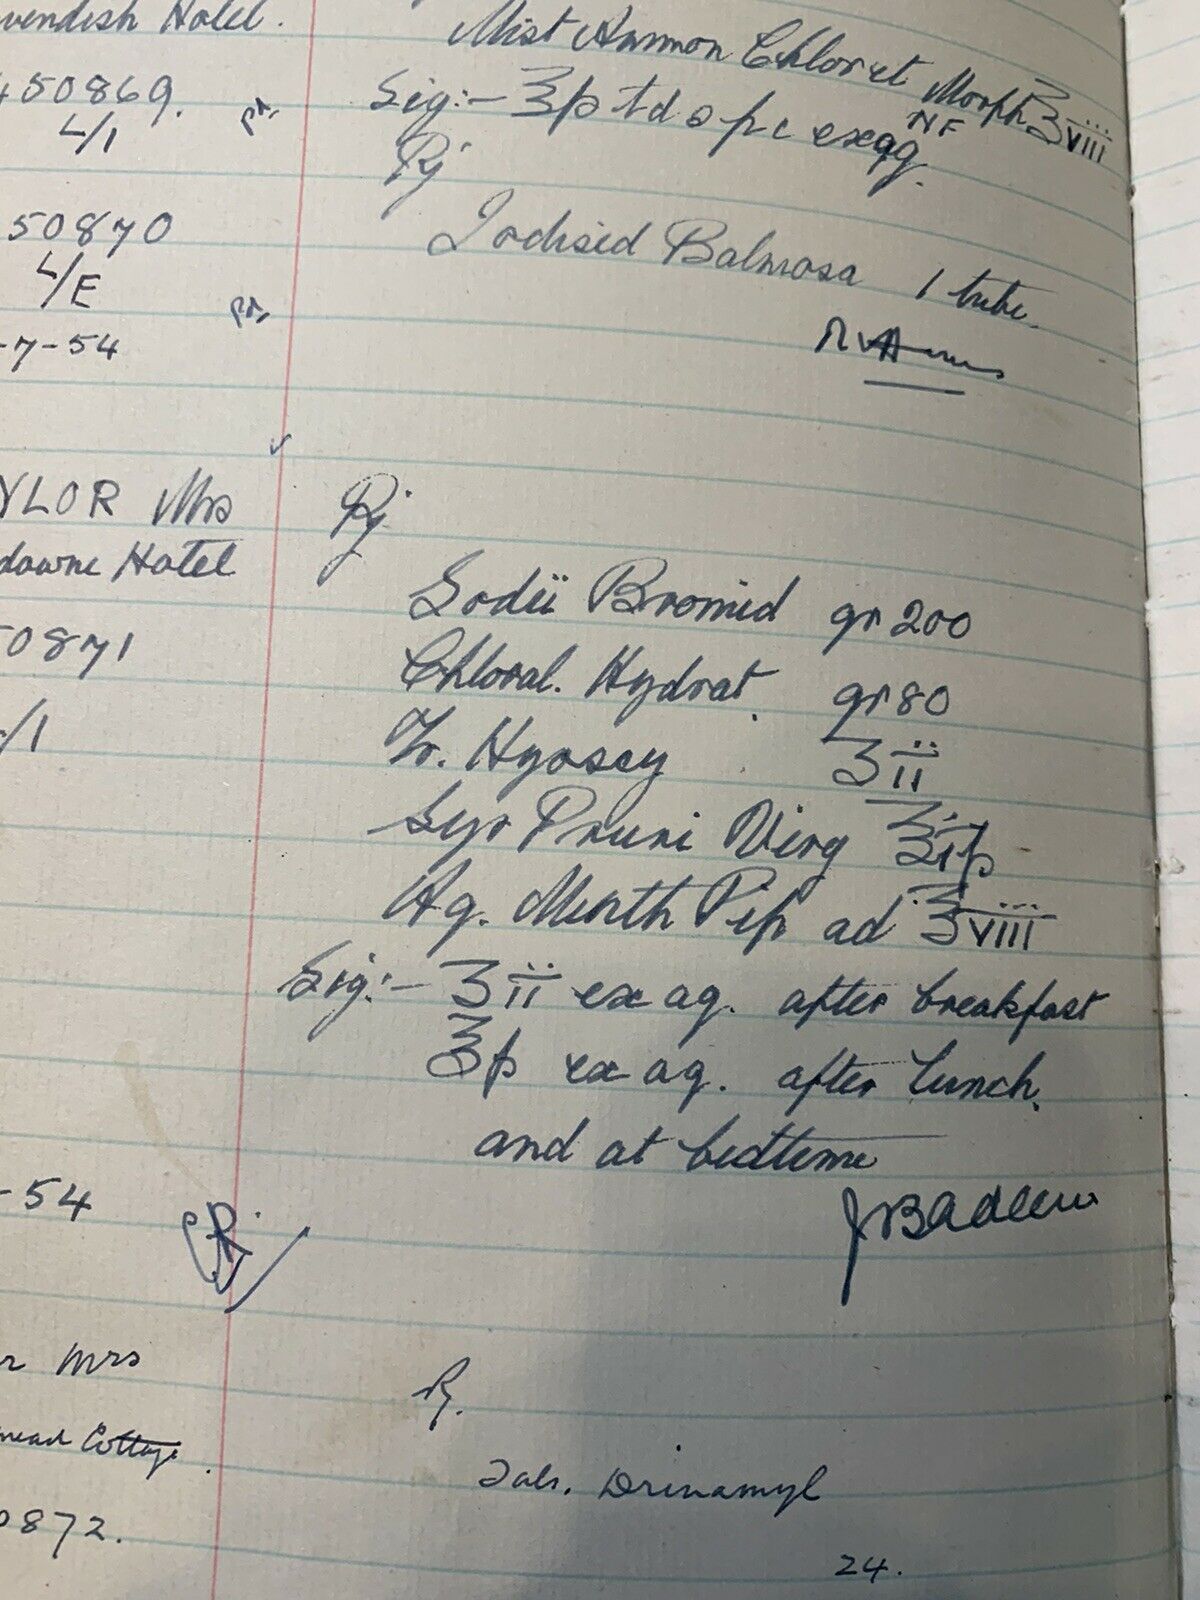 vendish Hotel.
Mist Ammon Chlor et Morph ℥viii
450869.
Sig:- ℥ß t d s p c ex aq.
NF
L/1
Rx
50870
Iodised Balmosa 1 tube.
L/E
-7-54
YLOR Mrs
Rx
downe Hotel
Sodii Bromid gr 200
0871
Chloral. Hydrat. gr 80
/1
Tr. Hyoscy ʒii
Syr Pruni Virg ℥iß
Aq. Menth Pip ad ℥viii
Sig:- ʒii ex aq. after breakfast
℥ß ex aq. after lunch.
and at bedtime
-54
r Mrs
Rx.
mead Cottage.
Tabs. Drinamyl
0872.
24.